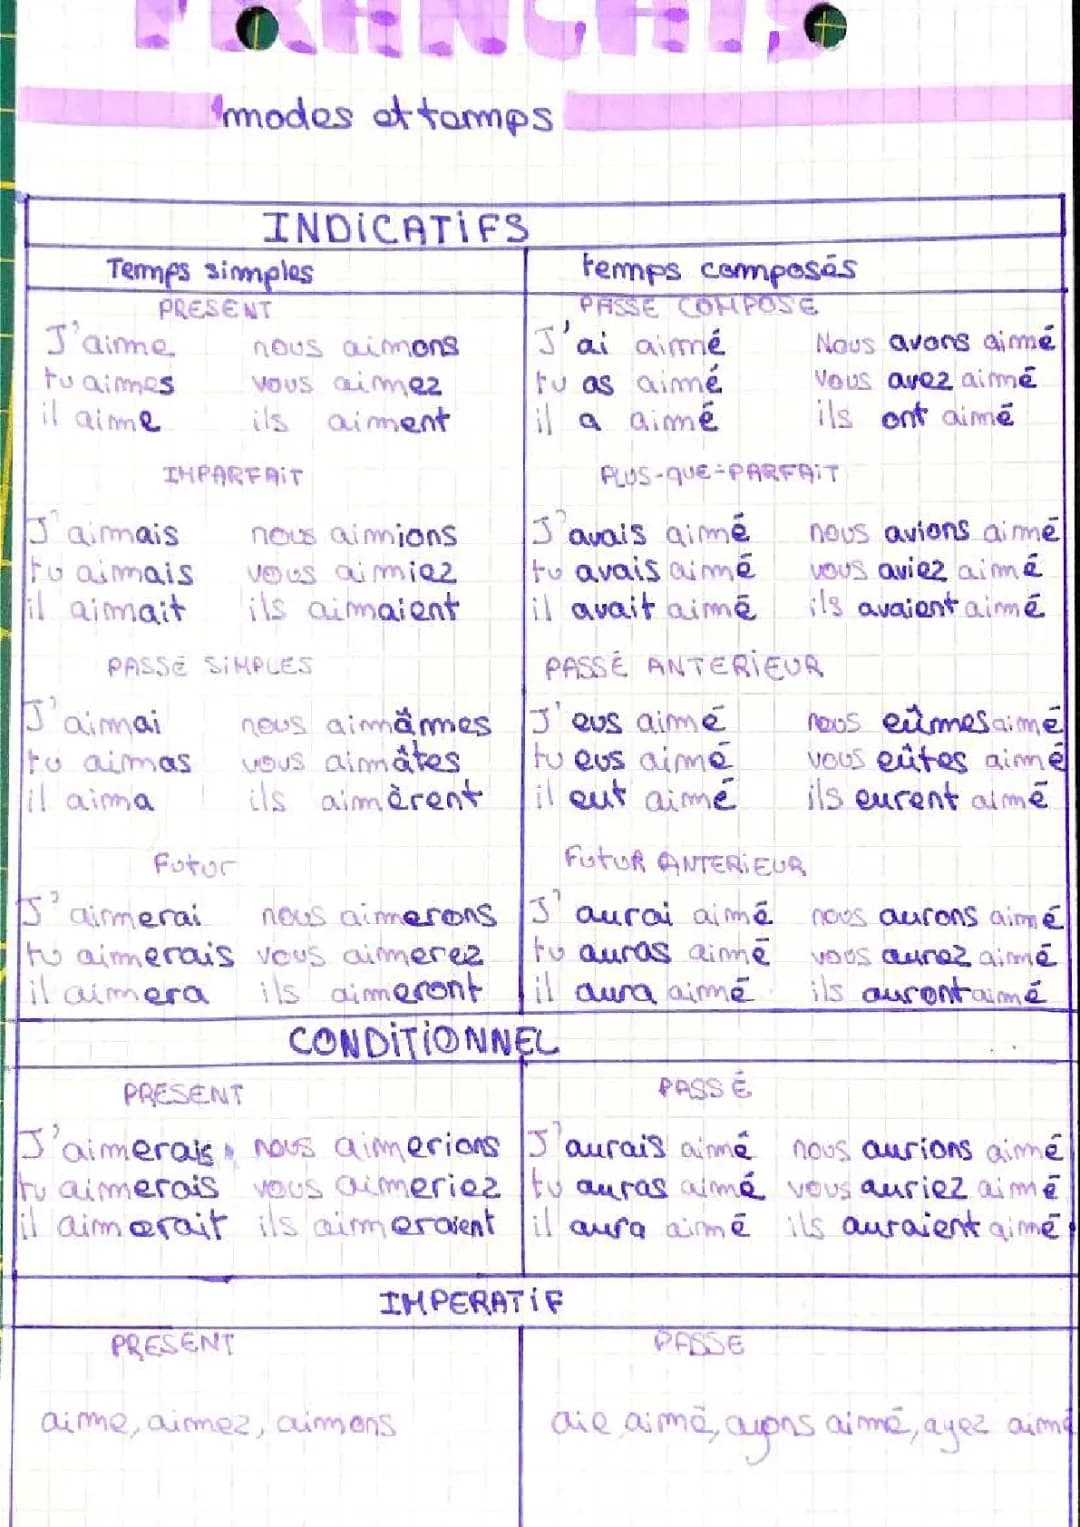 FRANCAIS
modes et temps
INDICATIFS
Temps simples
temps composés
PRESENT
J'aime nous aimons
tu aimes vous aimez
il aime ils aiment
PASSE COMPOSE
J'ai aimé Nous avons aimé
tu as aimé vous avez aimé
il a aimé ils ont aimé
IMPARFAIT
J'aimais nous aimions
tu aimais vous aimiez
il aimait ils aimaient
PLUS-QUE-PARFAIT
J'avais aimé nous avions aimé
tu avais aimé vous aviez aimé
il avait aimé ils avaient aimé
PASSÉ SIMPLES
J'aimai nous aimâmes
tu aimas vous aimâtes
il aima ils aimèrent
PASSÉ ANTERIEUR
J'eus aimé nous eûmes aimé
tu eus aimé vous eûtes aimé
il eut aimé ils eurent aimé
Futur
J'aimerai nous aimerons
tu aimerais vous aimerez
il aimera ils aimeront
FUTUR ANTERIEUR
J'aurai aimé nous aurons aimé
tu auras aimé vous aurez aimé
il aura aimé ils auront aimé
CONDITIONNEL
PRESENT
J'aimerais nous aimerions
tu aimerais vous aimeriez
il aimerait ils aimeraient
PASSÉ
J'aurais aimé nous aurions aimé
tu auras aimé vous auriez aimé
il aura aimé ils auraient aimé
IMPERATIF
PRESENT
aime, aimez, aimons
PASSE
aie aimé, ayons aimé, ayez aimé